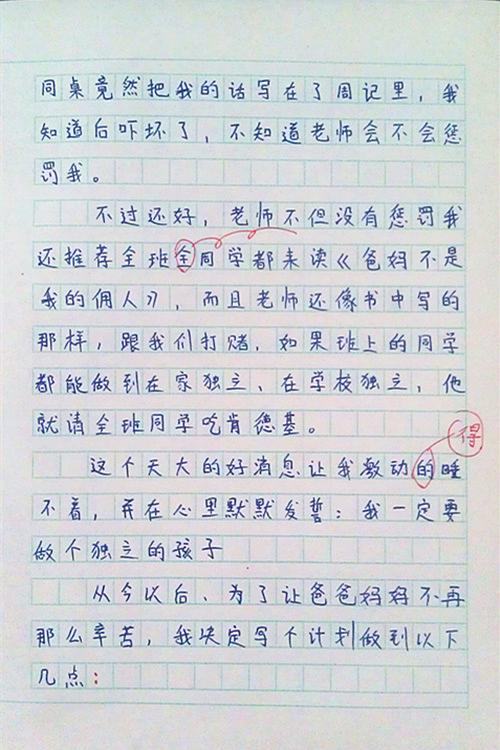 同桌竟然把我的话写在了周记里，我
知道后吓坏了，不知道老师会不会惩
罚我。
不过还好，老师不但没有惩罚我
还推荐全班全同学都来读《爸妈不是
我的佣人》，而且老师还像书中写的
那样，跟我们打赌，如果班上的同学
都能做到在家独立、在学校独立，他
就请全班同学吃肯德基。
得
这个天大的好消息让我激动的睡
不着，并在心里默默发誓：我一定要
做个独立的孩子
从今以后、为了让爸爸妈妈不再
那么辛苦，我决定写个计划做到以下
几点：